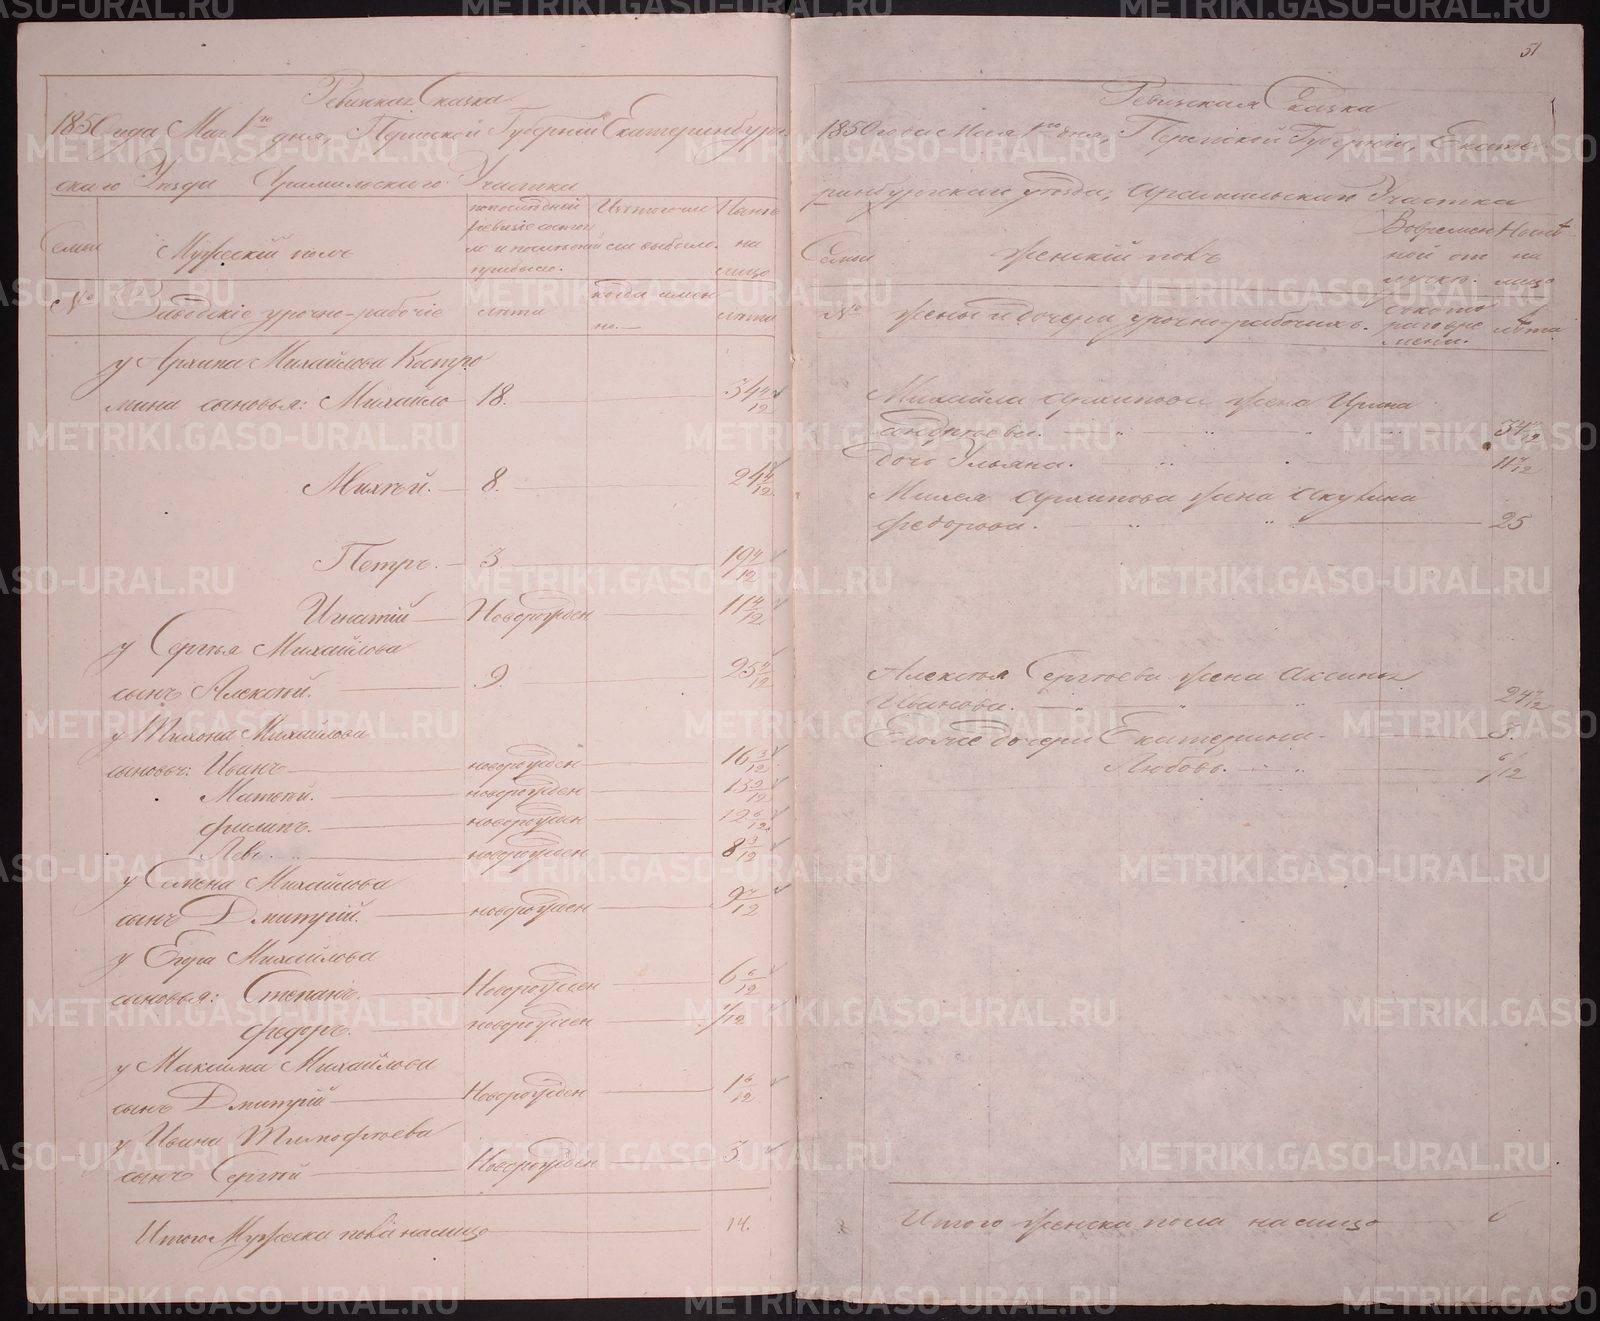 51
Ревизская Сказка
1850 года Мая 1го дня, Пермской Губерніи Екатеринбург-
скаго Уезда Арамильскаго Участка
Семьи
Мужескій полъ
по последней ревизіи состояло и после оной прибыло.
Изъ того числа выбыло.
Ныне на лицо
№
Заводскіе урочно-рабочіе
лета
когда имен-
но.
лета
у Архипа Михайлова Костро
мина сыновья: Михайло 18. 34 4/12
Михей. 8. 24 4/12
Петръ. 3 19 4/12
Игнатій Новорожден 11 4/12
у Сергья Михайлова
сынъ Алексей. 9. 25 4/12
у Тихона Михайлова
сыновья: Иванъ новорожден 16 3/12
Матвей. новорожден 13 9/12
Филипъ. новорожден 12 6/12
Левъ. новорожден 8 3/12
у Семена Михайлова
сынъ Дмитрій. новорожден 9 4/12
у Егора Михайлова
сыновья: Степанъ. Новорожден 6 6/12
Федоръ. новорожден 4/12
у Максима Михайлова
сынъ Дмитрій Новорожден 1 6/12
у Ивана Тимофеева
сынъ Сергей Новорожден 3
Итого Мужеска пола на лицо 14.
Ревизская Сказка
1850 года Мая 1го дня, Пермской Губерніи, Екате-
ринбургскаго уезда, Арамильскаго Участка
Семьи
Женскій полъ
Во временной отлучке.
Ныне на лицо
№
Жены и дочери урочно-рабочихъ.
съ котораго времени.
лета
Михайла Архипова жена Ирина
34 4/12
дочь Ульяна. 11 4/12
Михея Архипова жена Акулина
Федорова. 25
Алексея Сергеева жена Аксинья
Иванова. 24 4/12
Его же дочери Екатерина 3.
Любовь. 6/12
Итого женска пола на лицо 6